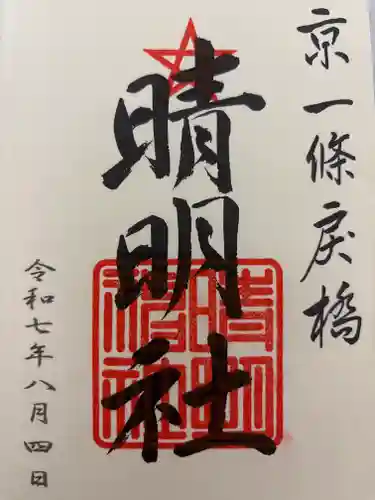 京一條戻橋
晴明社
晴明神社
令和七年八月四日